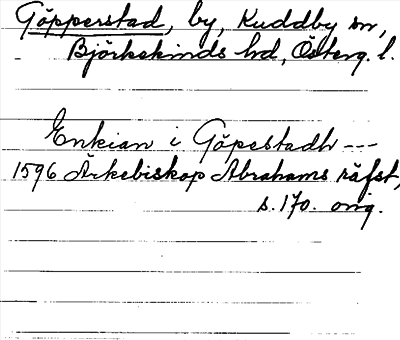 Göpperstad, by, Kuddby sn,
Björkekinds hd, Österg. l.
Enkian i Göpestadh ---
1596 Ärkebiskop Abrahams räfst,
s. 170. orig.